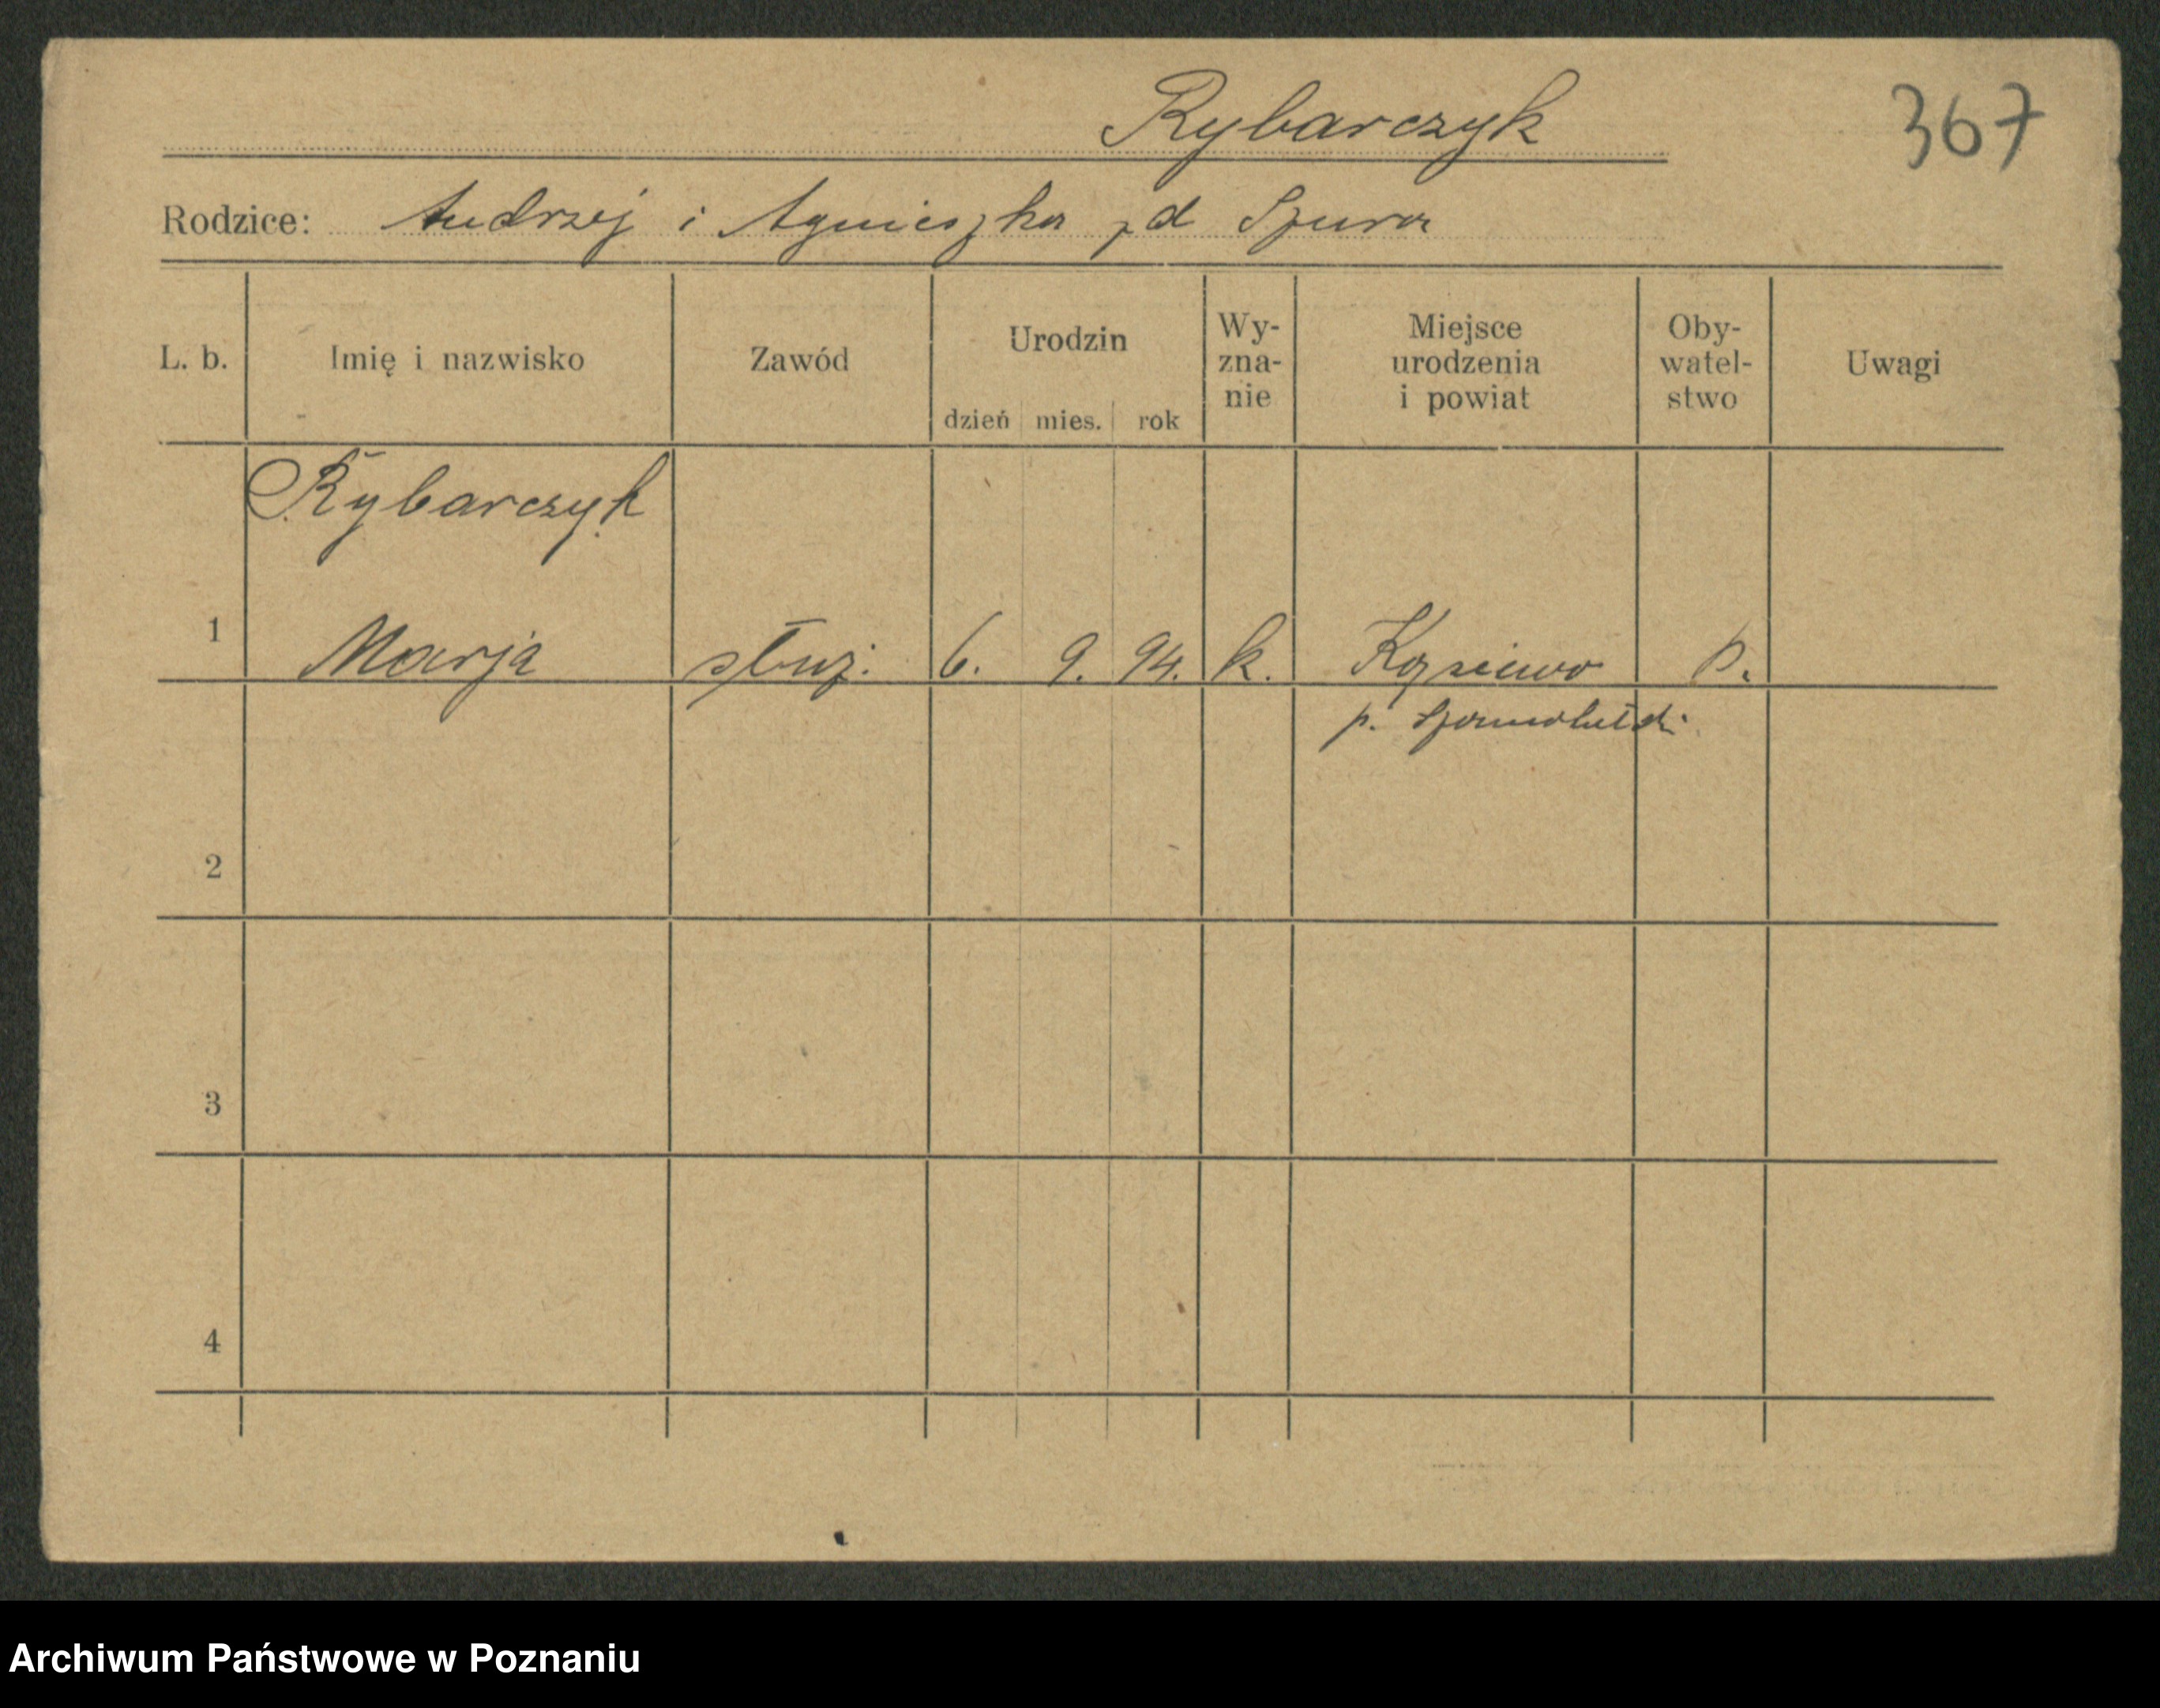 Rybarczyk
367
Rodzice: Andrzej i Agnieszka zd Szura
L. b. Imię i nazwisko Zawód Urodzin dzień mies. rok Wy-zna-nie Miejsce urodzenia i powiat Oby-watel-stwo Uwagi
Rybarczyk
1 Marja służ. 6. 9. 94. k. p.
p.
2
3
4
Archiwum Państwowe w Poznaniu